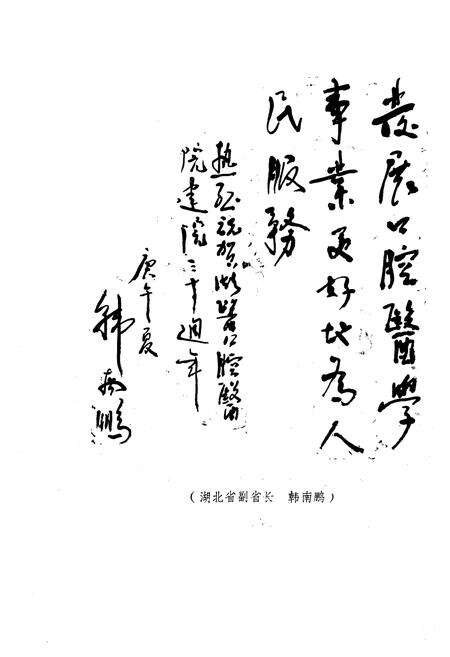 發展口腔醫學
事業更好地為人
民服務
热烈祝贺湖醫口腔醫
院建院三十週年
庚午夏
韩南鹏
（湖北省副省长　韩南鹏）